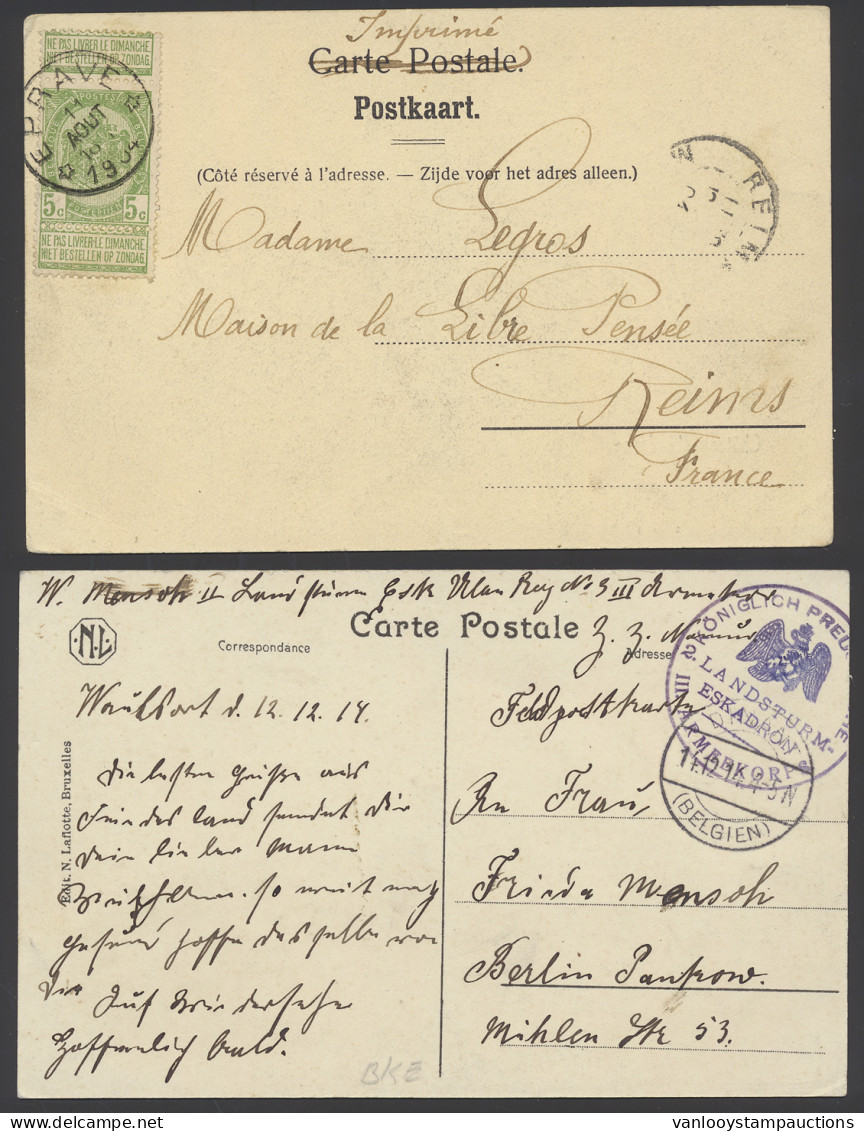 Imprimé
Carte Postale.
Postkaart.
(Côté réservé à l'adresse. — Zijde voor het adres alleen.)
NE PAS LIVRER LE DIMANCHE
NIET BESTELLEN OP ZONDAG
EPRAVE
11
AOUT
1904
POSTES
5c 5c
NE PAS LIVRER LE DIMANCHE
NIET BESTELLEN OP ZONDAG
REIM
Madame Legros
Maison de la Libre Pensée
Reims
France
W. Mensch II Landsturm Esk Ulan Reg No 3 III Armeekor
N.L.
Correspondance
Carte Postale
Adresse
z. Z.
2. KÖNIGLICH PREU
LANDSTURM-
ESKADRON
III ARMEEKORPS
(BELGIEN)
Waulsort d. 12.12.14.
Die besten Grüße aus
Feindes Land sendet dir
dein lieber Mann
so weit
gesund hoffe dasselbe von
dir
Auf Wiedersehn
hoffentlich bald.
Edit. N. Laflotte, Bruxelles
Feldpostkarte
An Frau
Frieda Mensch
Berlin Pankow.
Mühlen Str 53.
BKE
www.vanlooystampauctions.com